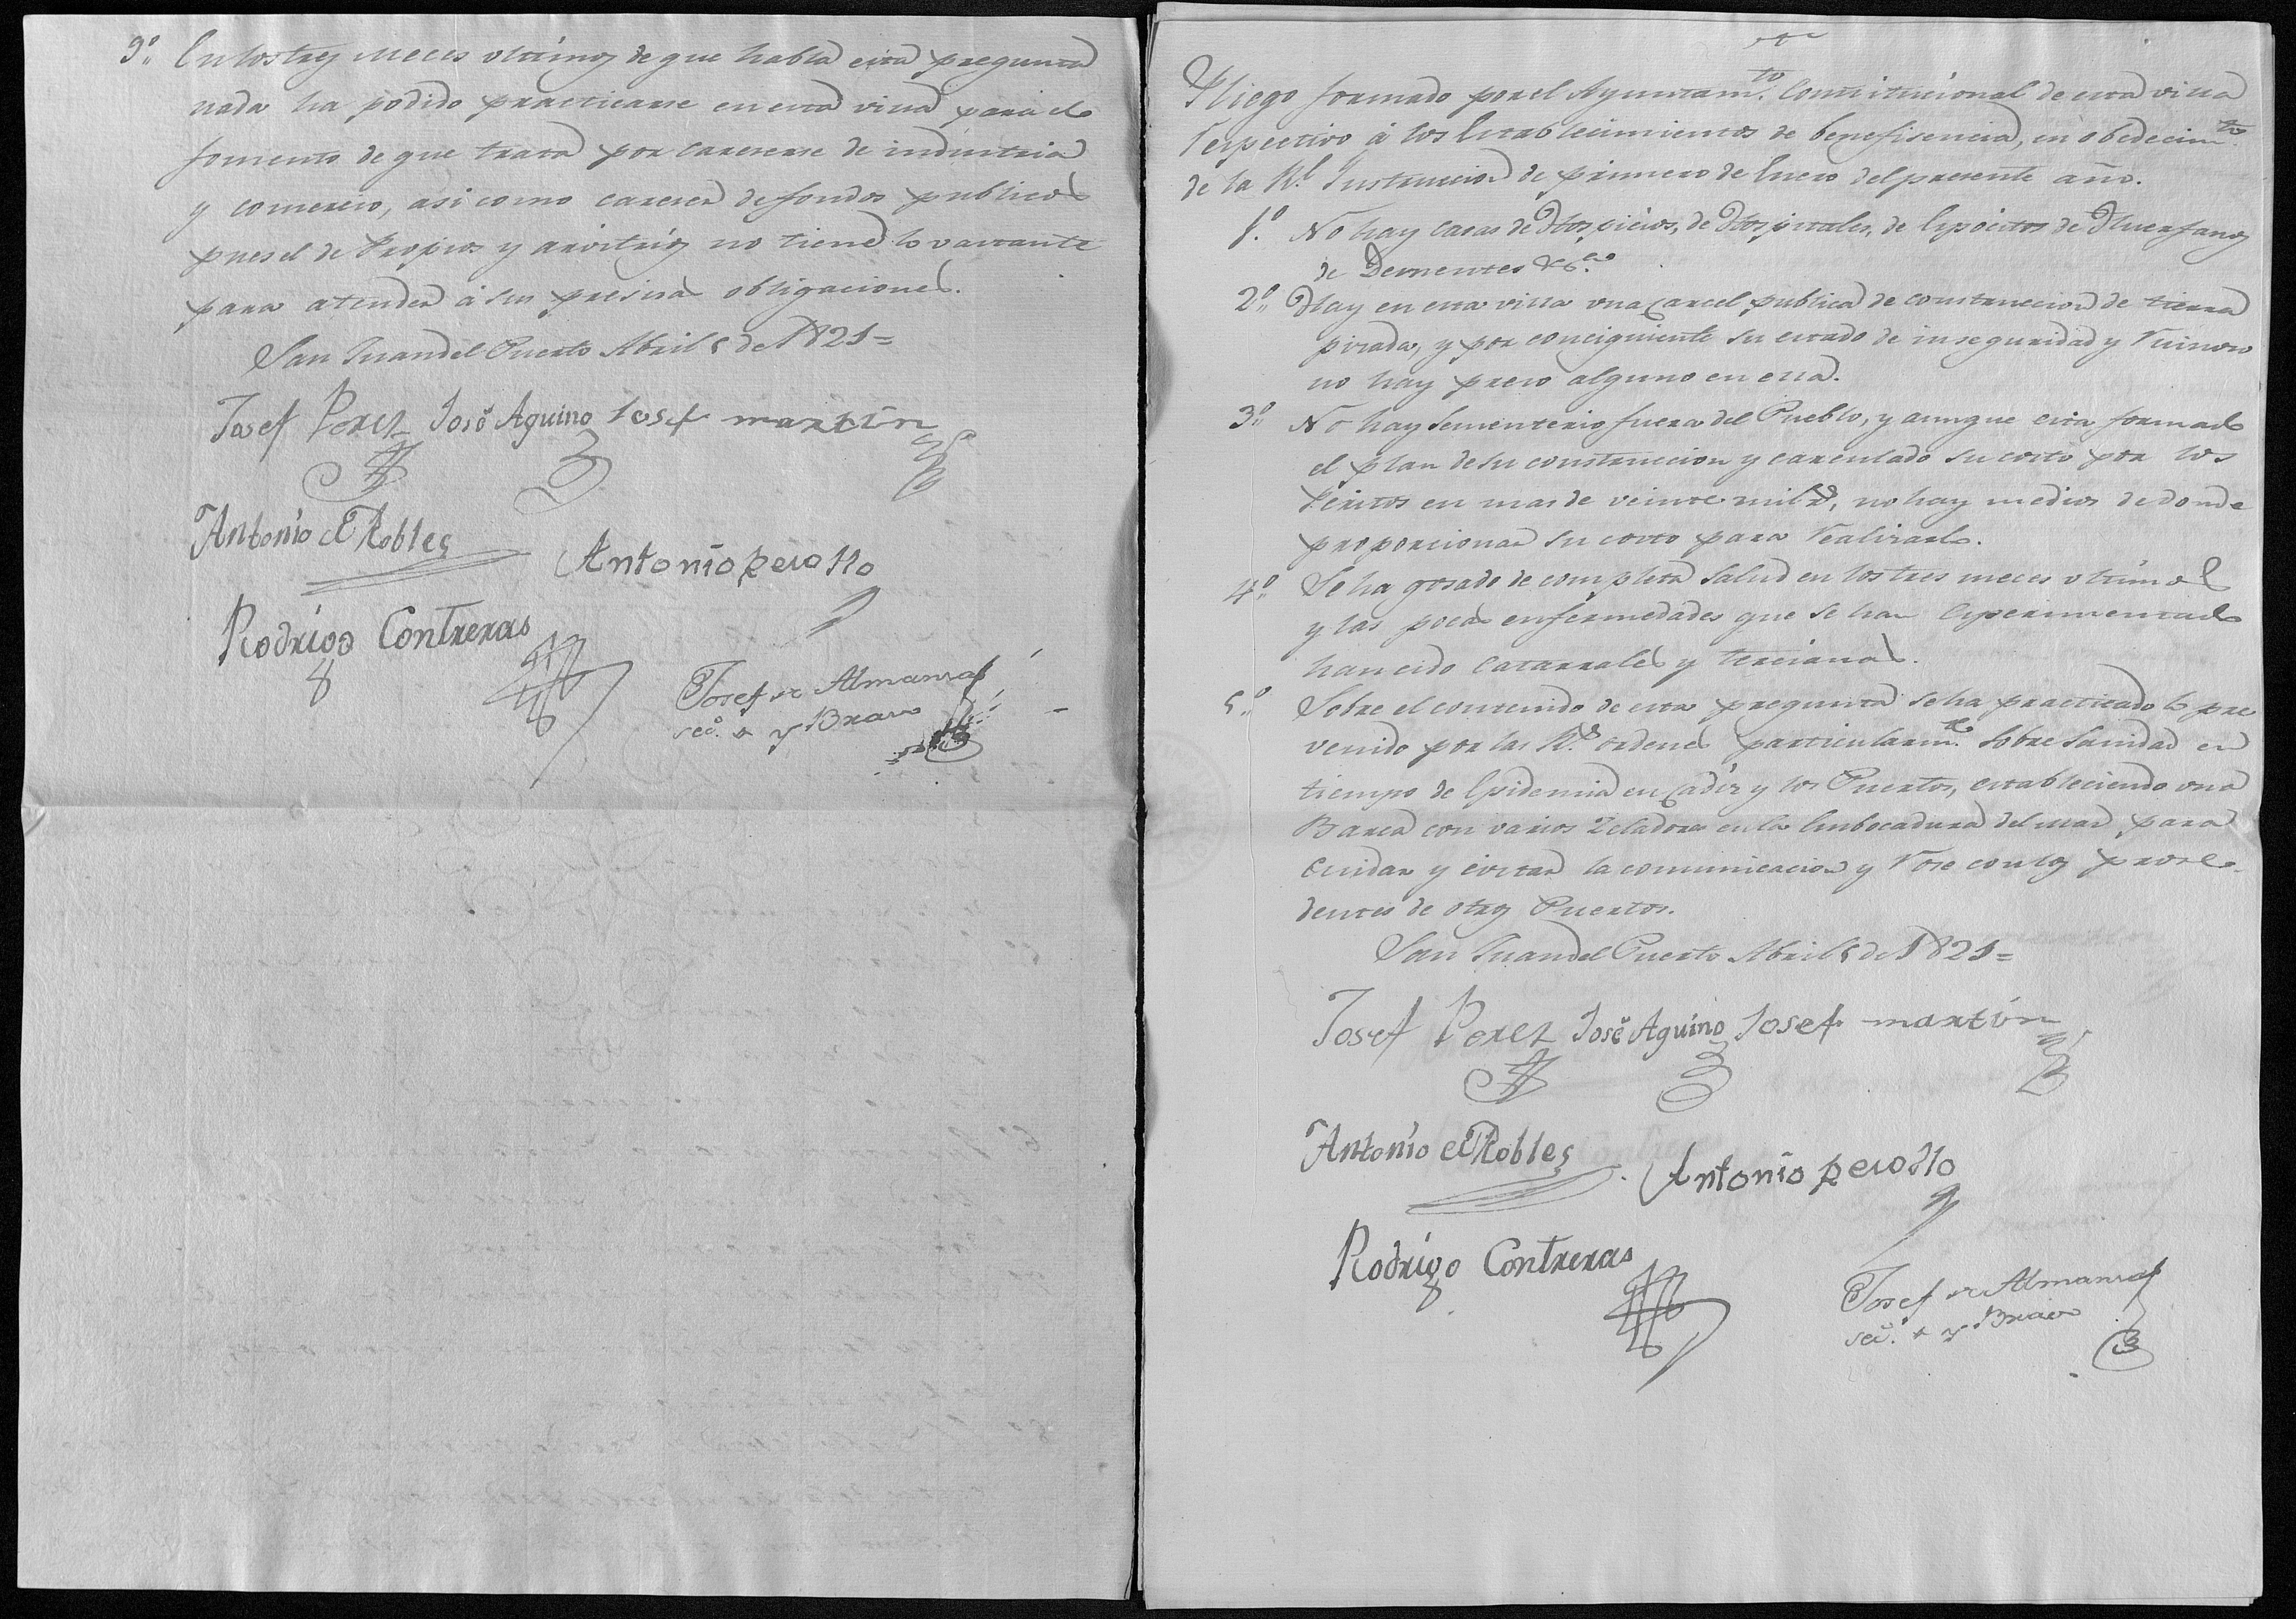 9º En los tres meces ultimos de que habla esta pregunta
nada ha podido practicarse en esta villa para el
fomento de que trata por careserse de industria
y comercio, asi como careser de fondos publicos
pues el de Propios y arvitrios no tiene lo vastante
para atender á sus presisas obligaciones.
San Juan del Puerto Abril 5 de 1821=
Josef Perez José Aquino Josef martin
Antonio de Robles
Antonio
Rodrigo Contreras
Josef de Almansa
sec.º y Bravo
Pliego formado por el Ayuntam.to Constitucional de esta villa
respectivo á los Establecimientos de benefisencia, en obedecim.to
de la R.l Instruccion de primero de Enero del presente año.
1.º No hay casas de Hospicios, de Hospitales, de Espócitos de Huerfanos
de Dementes &.ca
2º Hay en esta villa vna Carcel publica de construccion de tierra
pisada, y por conciguiente su estado de inseguridad y
no hay preso alguno en ella.
3º No hay Sementerio fuera del Pueblo, y aunque esta formado
el plan de su construccion y carculado su costo por los
Peritos en mas de veinte mil r.s, no hay medios de donde
proporcionar su costo para realizarlo.
4º Se ha gosado de completa salud en los tres meces ultimos
y las pocas enfermedades que se han esperimentado
han cido catarrales y tercianas.
5º Sobre el contenido de esta pregunta se ha practicado lo pre
venido por las R.s ordenes particularm.te sobre Sanidad en
tiempo de Epidemia en Cadiz y los Puertos, estableciendo una
Barca con varios Zeladores en la Embocadura del mar para
cuidar y evitar la comunicacion y rose con los proce-
dentes de otros Puertos.
San Juan del Puerto Abril 5 de 1821=
Josef Perez José Aquino Josef martin
Antonio de Robles
Antonio
Rodrigo Contreras
Josef de Almansa
sec.º y Bravo